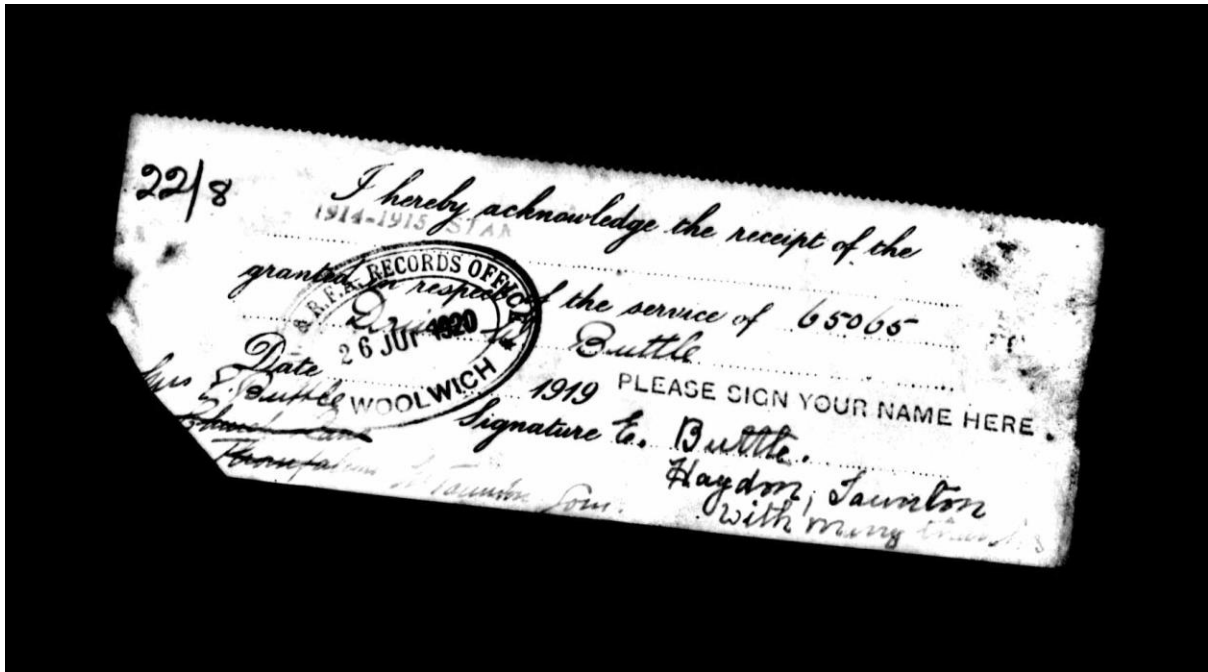 22/8
I hereby acknowledge the receipt of the
1914-1915 STAR
granted in respect of the service of 65065
Buttle
R.F.A. RECORDS OFFICE
26 1920
WOOLWICH
Date 1919
PLEASE SIGN YOUR NAME HERE.
Signature E. Buttle.
Haydon, Taunton
With many thanks
Mrs E. Buttle
Lane
Taunton Som.